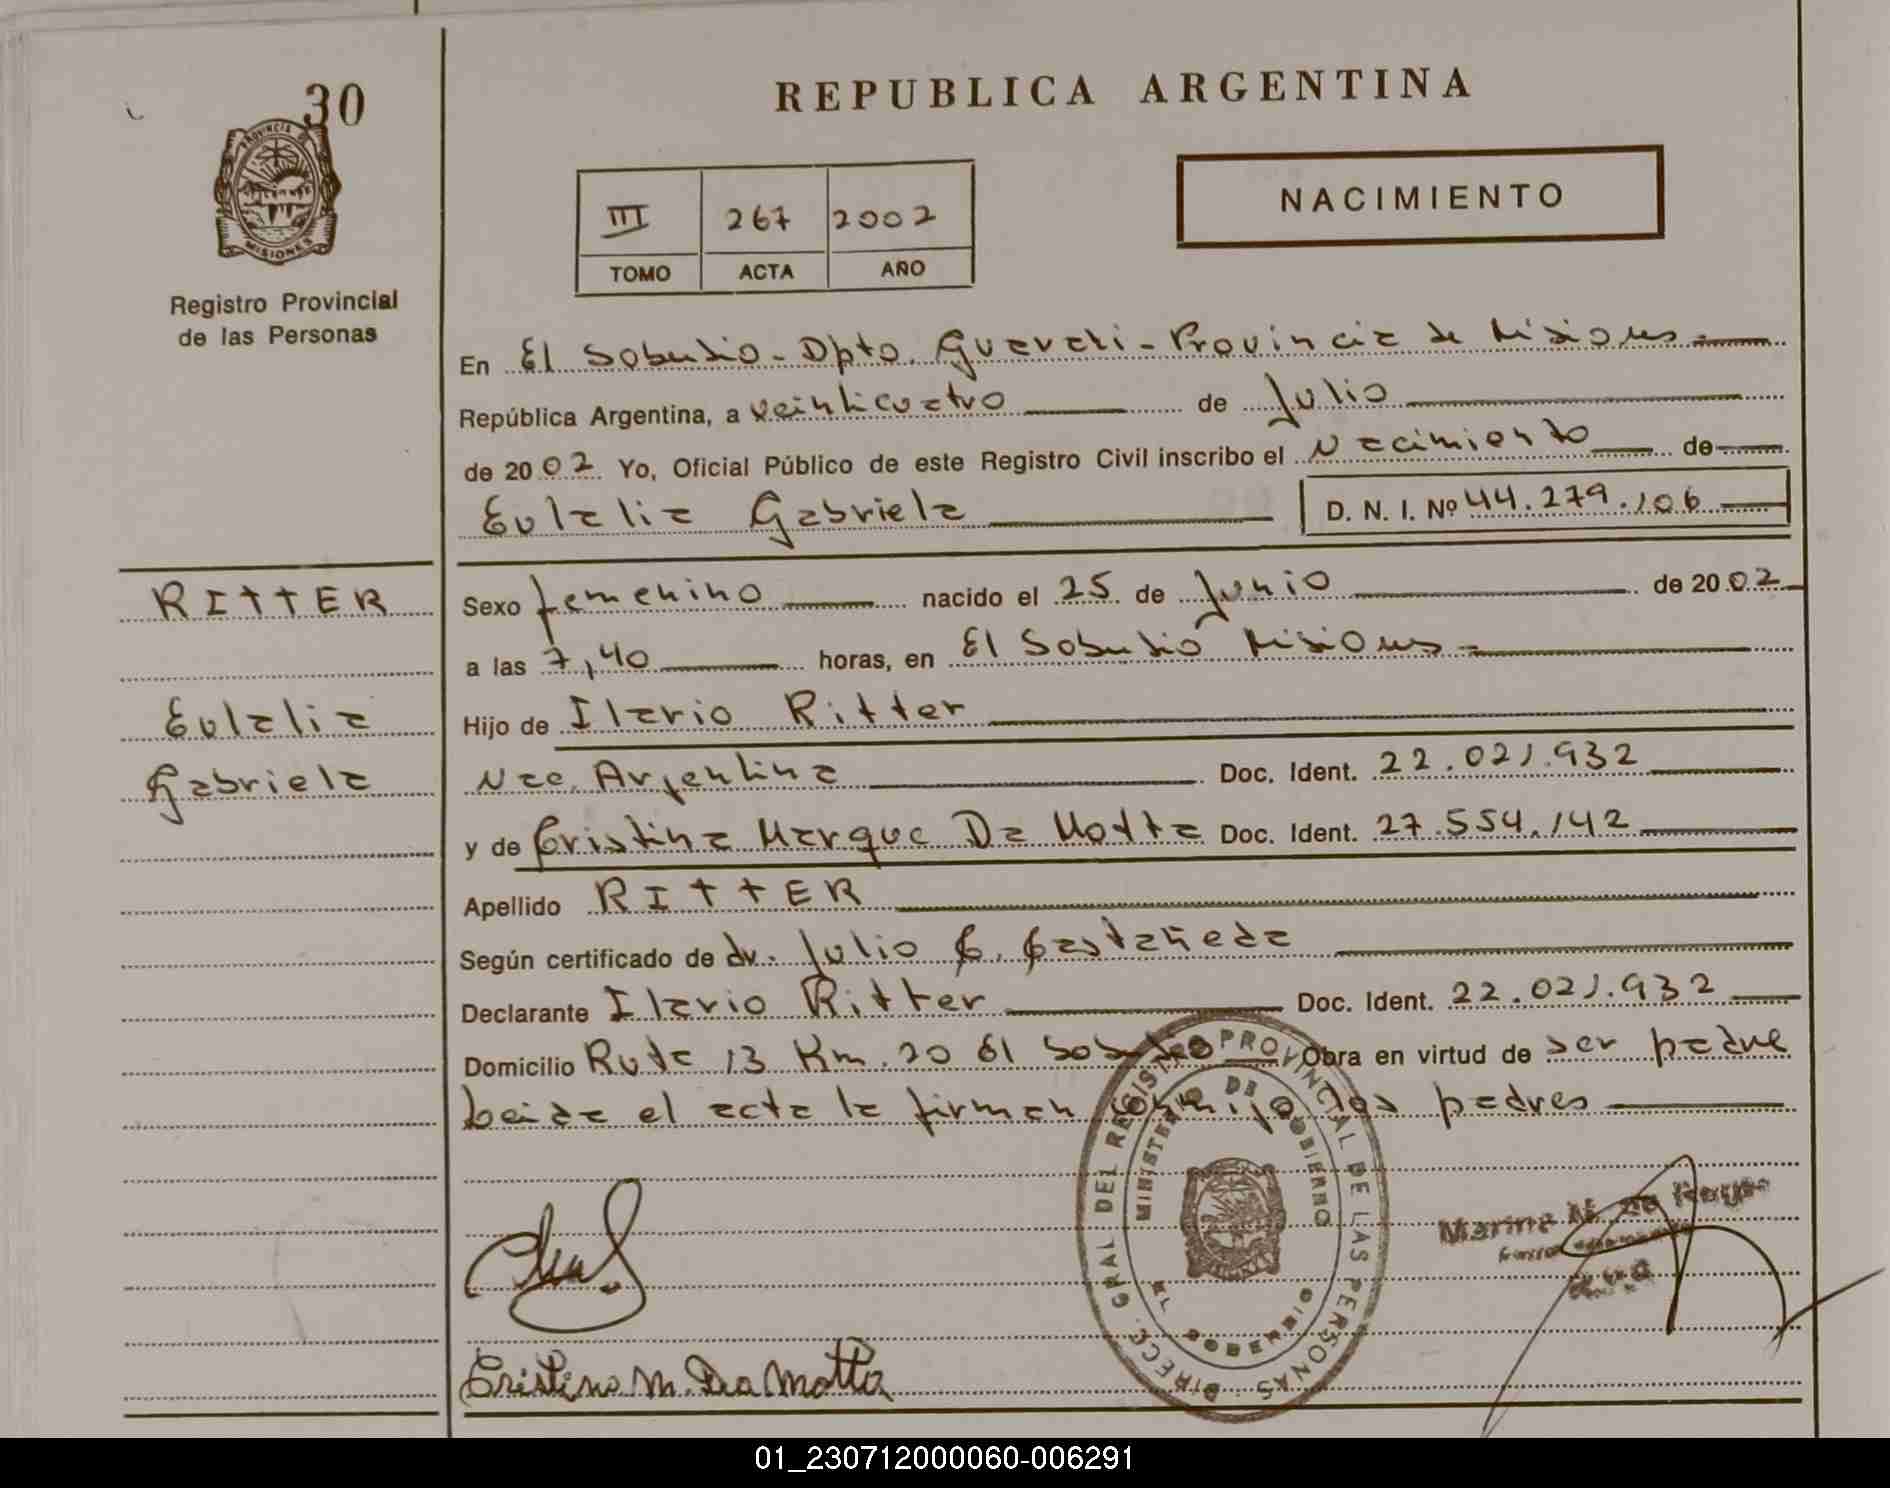 30
PROVINCIA DE
MISIONES
Registro Provincial
de las Personas
REPUBLICA ARGENTINA
NACIMIENTO
III 267 2002
TOMO ACTA AÑO
En El Soberbio - Dpto. Guarani - Provincia de Misiones
República Argentina, a veinticuatro de Julio
de 2002 Yo, Oficial Público de este Registro Civil inscribo el Nacimiento de
Eulalia Gabriela D. N. I. Nº 44.279.106
RITTER
Eulalia
Gabriela
Sexo femenino nacido el 25 de Junio de 2002
a las 7,40 horas, en El Soberbio Misiones
Hijo de Ilario Ritter
Nac. Argentina Doc. Ident. 22.021.932
y de Cristina Marque Da Motta Doc. Ident. 27.554.142
Apellido RITTER
Según certificado de dr. Julio C. Castañeda
Declarante Ilario Ritter Doc. Ident. 22.021.932
Domicilio Ruta 13 Km. 20 El Soberbio Obra en virtud de ser padre
Leida el acta la firman conmigo los padres
DIRECC. GRAL DEL REGISTRO PROVINCIAL DE LAS PERSONAS
MINISTERIO DE GOBIERNO
EL SOBERBIO
Marina N. de
Cristina M. Da Motta
01_230712000060-006291